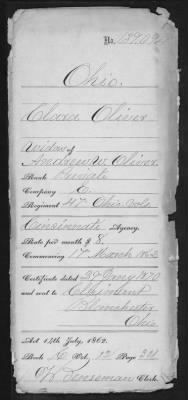 No. 139.094
Ohio.
Clara Oliver
Widow of
Andrew W. Oliver
Rank Private
Company E.
Regiment 47 Ohio Vols
Cincinnati Agency.
Rate per month $8.
Commencing 17 March 1863
Certificate dated 29 Jany 1870
and sent to
Blanchester
Ohio
Act 14th July, 1862.
Book Vol. 12 Page 321
Clerk.